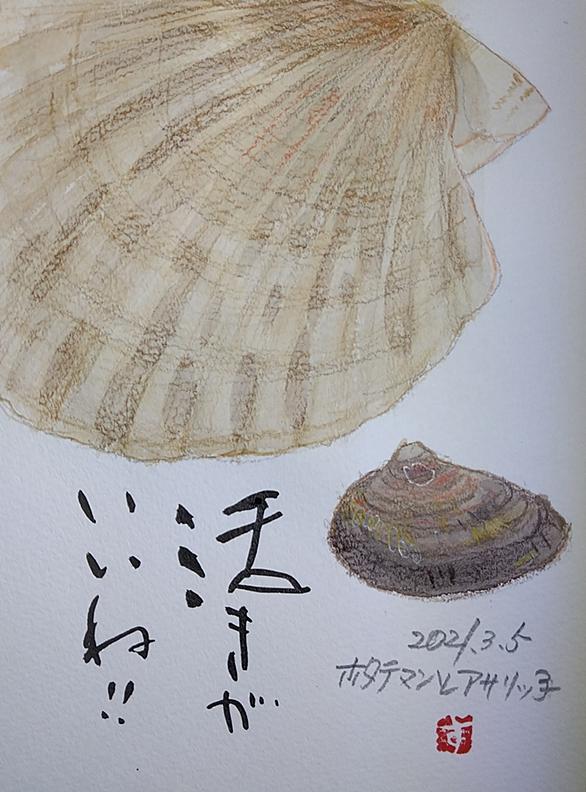 活きが
いいね!!
2021.3.5
ホタテマンとアサリッ子
す